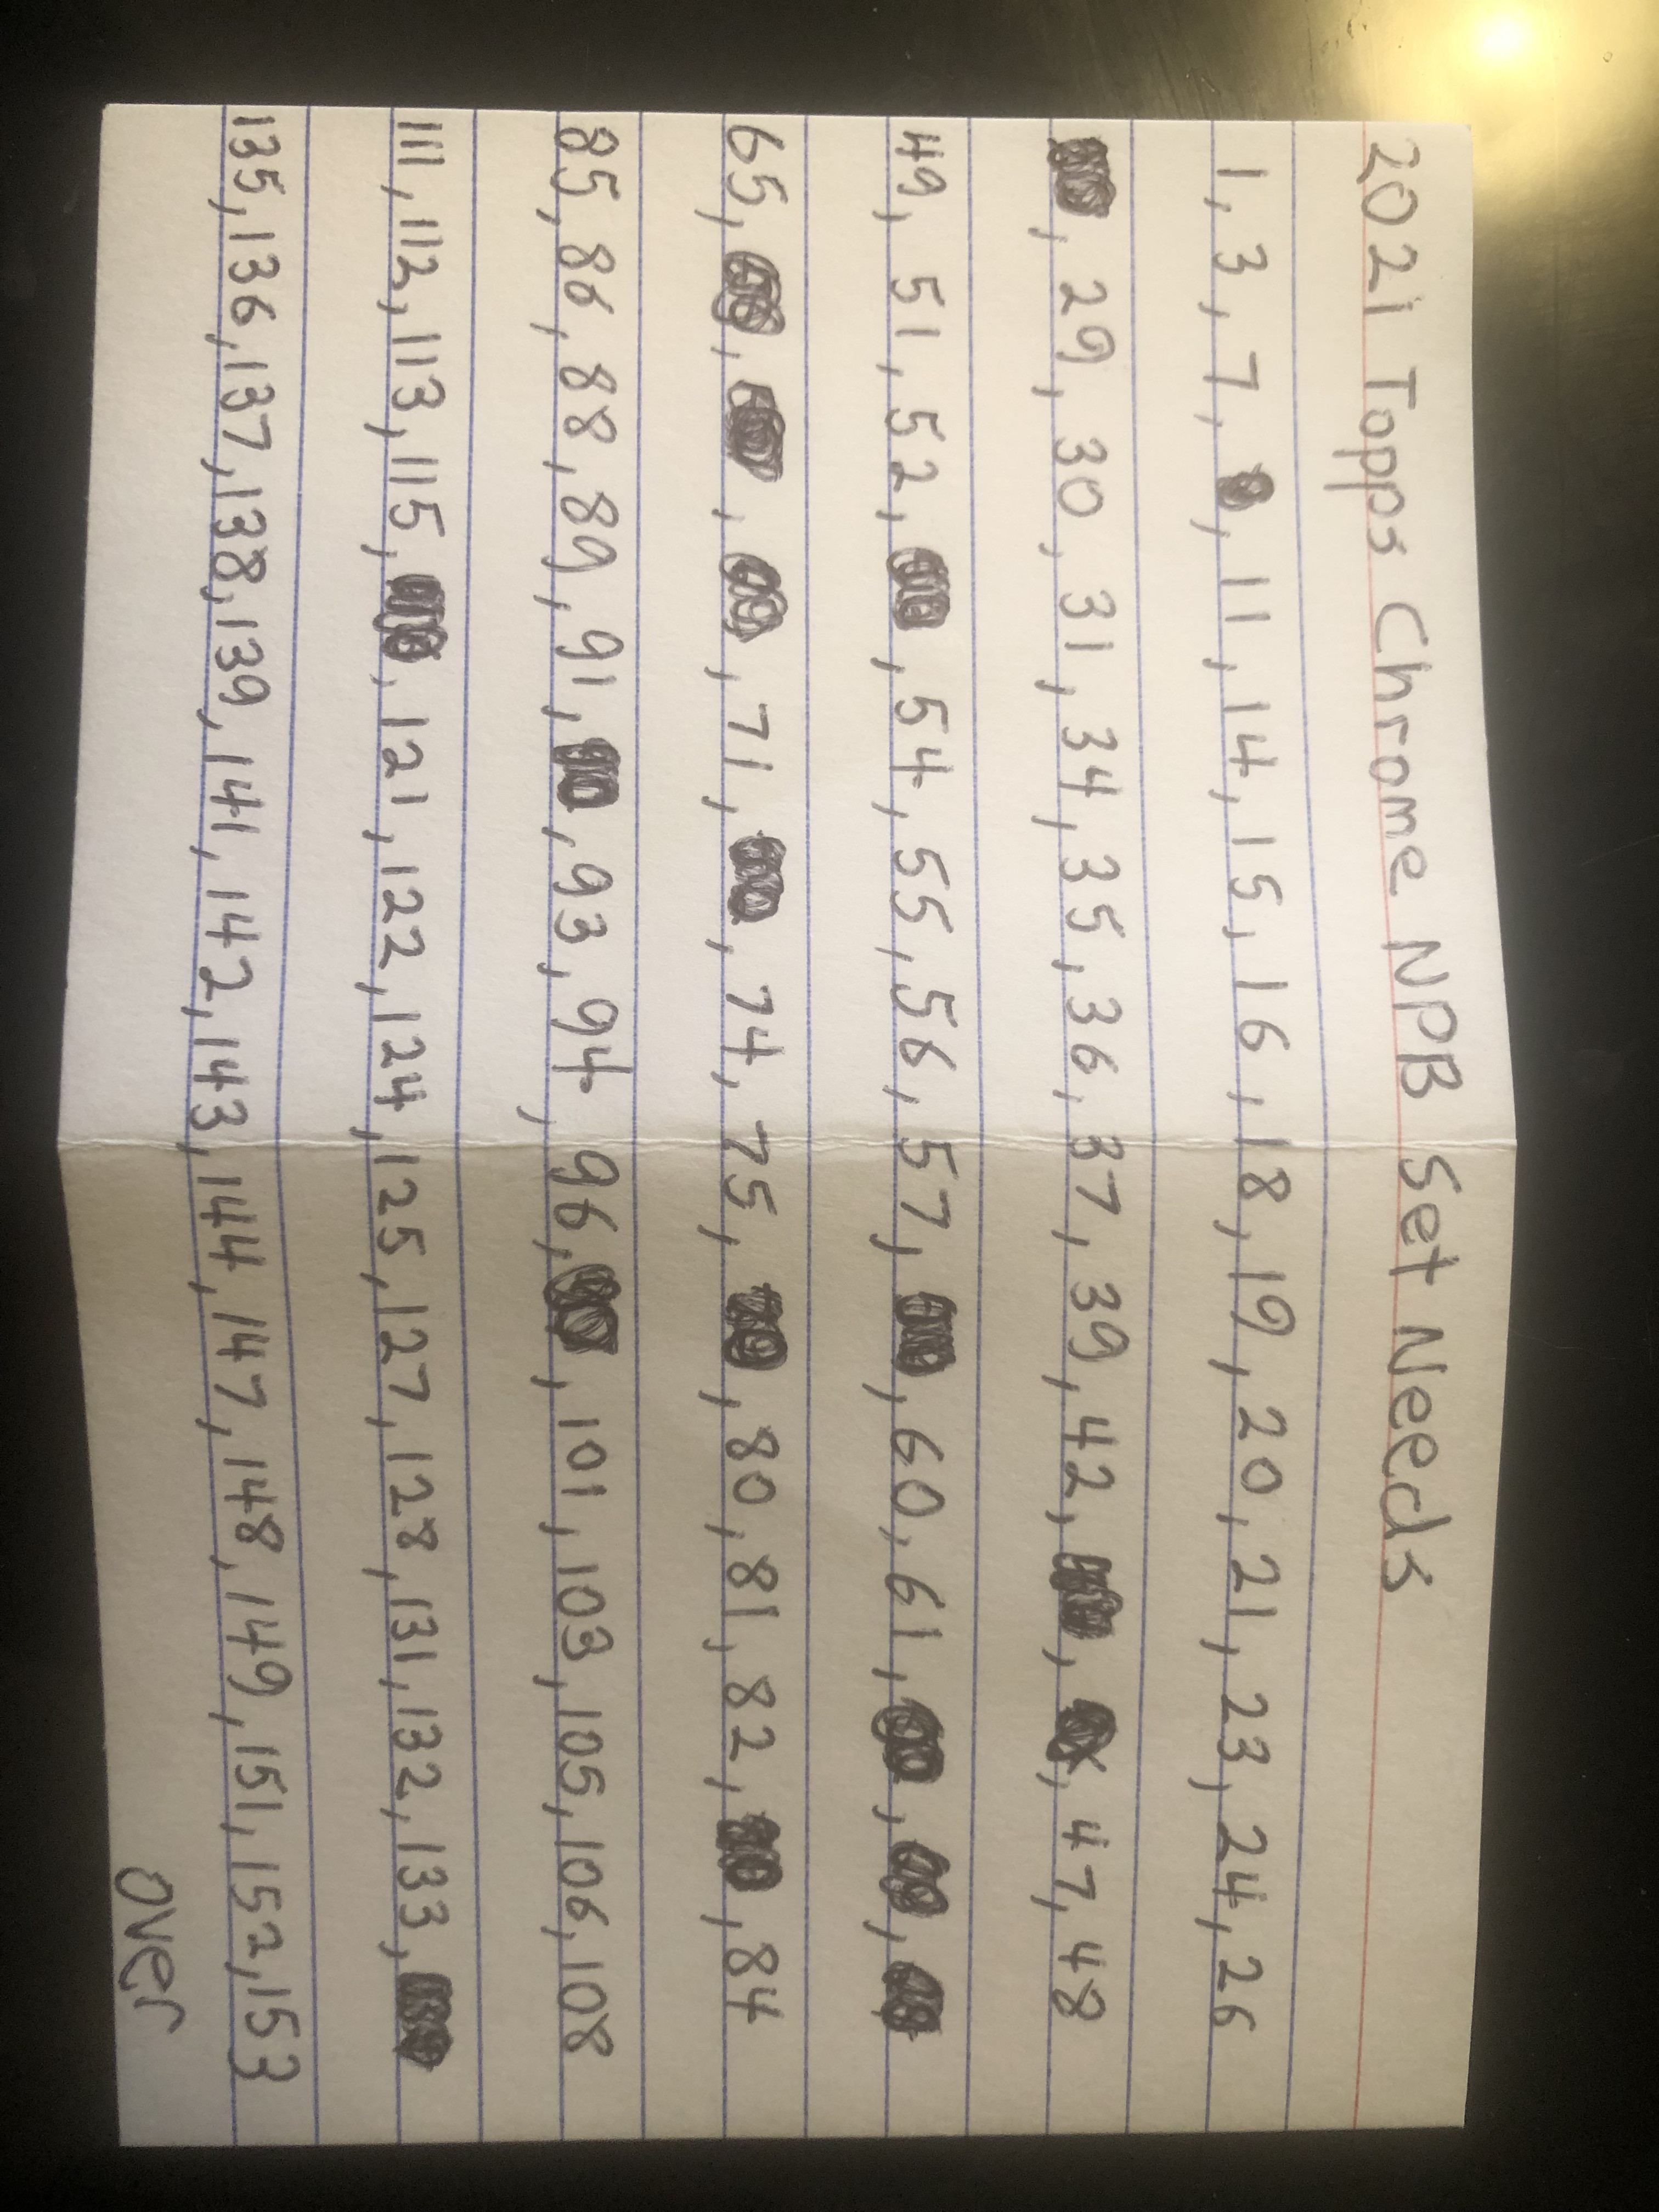 2021 Topps Chrome NPB Set Needs
1, 3, 7, , 11, 14, 15, 16, 18, 19, 20, 21, 23, 24, 26
, 29, 30, 31, 34, 35, 36, 37, 39, 42, , , 47, 48
49, 51, 52, , 54, 55, 56, 57, , 60, 61, , ,
65, , , , 71, , 74, 75, , 80, 81, 82, , 84
85, 86, 88, 89, 91, , 93, 94, 96, , 101, 103, 105, 106, 108
111, 112, 113, 115, , 121, 122, 124, 125, 127, 128, 131, 132, 133,
135, 136, 137, 138, 139, 141, 142, 143, 144, 147, 148, 149, 151, 152, 153
over